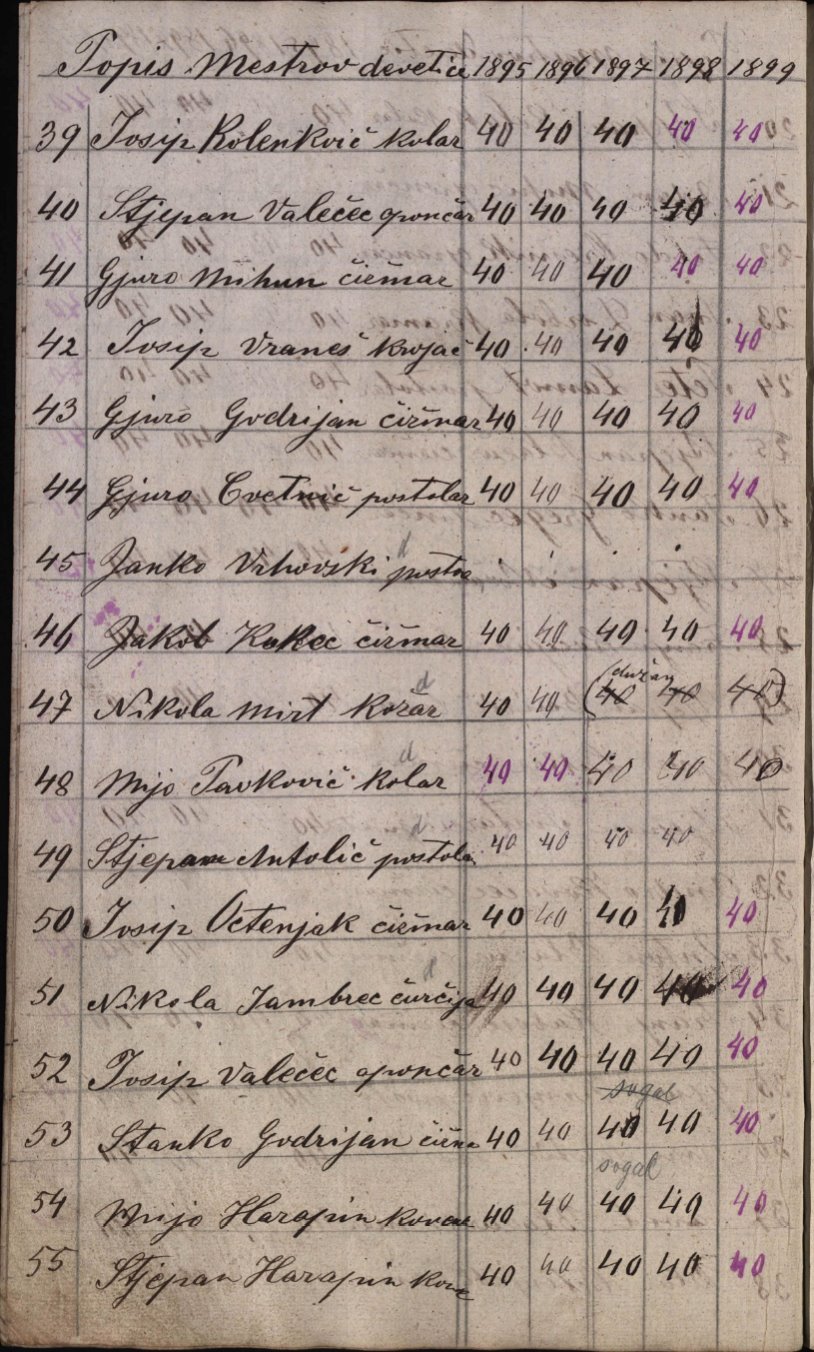 Popis Mestrov devetice 1895 1896 1897 1898 1899
39 Josip Kolenković kolar 40 40 40 40 40
40 Stjepan Valečec opončar 40 40 40 40 40
41 Gjuro Mihun čižmar 40 40 40 40 40
42 Josip Vraneš krojač 40 40 40 40 40
43 Gjuro Godrijan čižmar 40 40 40 40 40
44 Gjuro Cvetnić postolar 40 40 40 40 40
d
45 Janko Vrhovski posto
46 Jakob Kokec čižmar 40 40 40 40 40
d dužan
47 Nikola Mirt kožar 40 40 (40 40 40)
d
48 Mijo Pavković kolar 40 40 40 40 40
d
49 Stjepan Antolić postola 40 40 40 40
50 Josip Octenjak čižmar 40 40 40 40 40
d
51 Nikola Jambrec čurčija 40 40 40 40 40
52 Josip Valečec opončar 40 40 40 40 40
sogal
53 Stanko Godrijan čižm 40 40 40 40 40
sogal
54 Mijo Harapin kovač 40 40 40 40 40
55 Stjepan Harapin kova 40 40 40 40 40